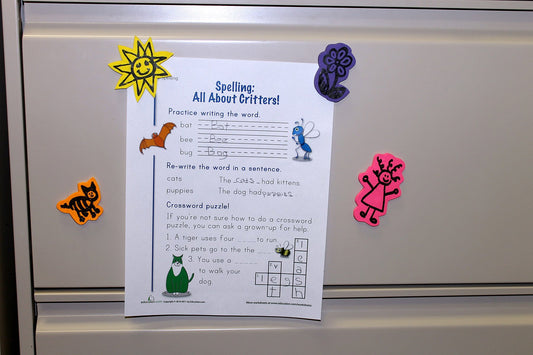 Spelling:
All About Critters!
Practice writing the word.
bat Bat
bee Bee
bug Bog
Re-write the word in a sentence.
cats The cats had kittens
puppies The dog had puppies
Crossword puzzle!
If you're not sure how to do a crossword
puzzle, you can ask a grown-up for help.
1. A tiger uses four _ _ _ _ to run.
2. Sick pets go to the the _ _ _
3. You use a _ _ _ _ _
to walk your
dog.
l
e
v a
l e g s
t h